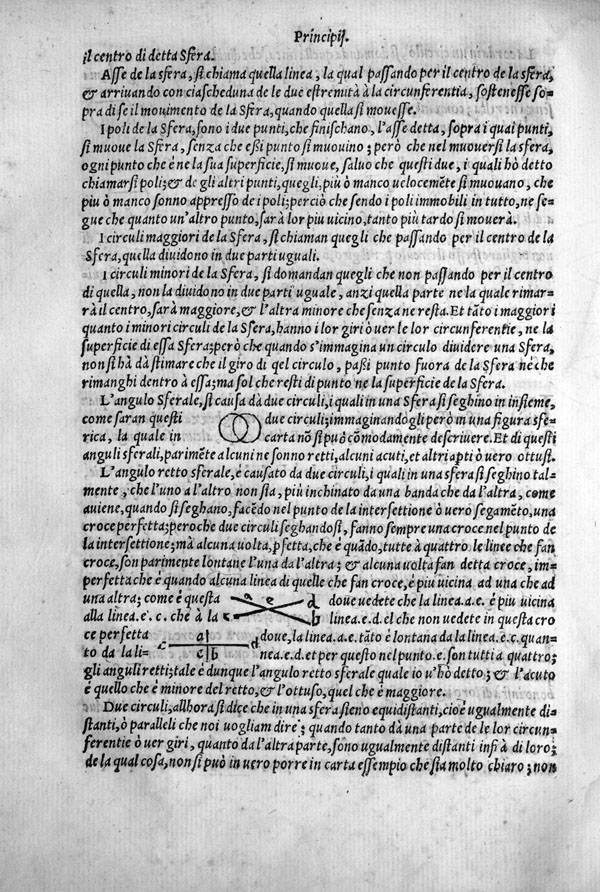 Principij.
il centro di detta Sfera.
Asse de la sfera, si chiama quella linea, la qual passando per il centro de la sfera,
& arriuando con ciascheduna de le due estremità à la circunferentia, sostenesse so-
pra di se il mouimento de la Sfera, quando quella si mouesse.
I poli de la Sfera, sono i due punti, che finischano, l'asse detta, sopra i quai punti,
si muoue la Sfera, senza che eßi punto si muouino; però che nel muouersi la sfera,
ogni punto che è ne la sua superficie, si muoue, saluo che questi due, i quali hò detto
chiamarsi poli; & de gli altri punti, quegli, più ò manco uelocemẽte si muouano, che
più ò manco sonno appresso de i poli; perciò che sendo i poli immobili in tutto, ne se-
gue che quanto un'altro punto, sarà lor piu uicino, tanto più tardo si mouerà.
I circuli maggiori de la Sfera, si chiaman quegli che passando per il centro de la
Sfera, quella diuidono in due parti uguali.
I circuli minori de la Sfera, si domandan quegli che non passando per il centro
di quella, non la diuidono in due parti uguale, anzi quella parte ne la quale rimar-
rà il centro, sarà maggiore, & l'altra minore che senza ne resta. Et tãto i maggiori
quanto i minori circuli de la Sfera, hanno i lor giri ò uer le lor circunferentie, ne la
superficie di essa Sfera; però che quando s'immagina un circulo diuidere una Sfera,
non si hà dà stimare che il giro di qel circulo, paßi punto fuora de la Sfera ne che
rimanghi dentro à essa; ma sol che resti di punto ne la superficie de la Sfera.
L'angulo Sferale, si causa dà due circuli, i quali in una Sfera si seghino in insieme,
come saran questi due circuli; immaginandogli però in una figura sfe-
rica, la quale in carta nõ si può cõmodamente descriuere. Et di questi
anguli sferali, parimẽte alcuni ne sonno retti, alcuni acuti, et altri apti ò uero ottusi.
L'angulo retto sferale, è causato da due circuli, i quali in una sfera si seghino tal-
mente, che l'uno a l'altro non sia, più inchinato da una banda che da l'altra, come
auiene, quando si seghano, facẽdo nel punto de la intersettione ò uero segamẽto, una
croce perfetta; peroche due circuli seghandosi, fanno sempre una croce nel punto de
la intersettione; mà alcuna uolta, pfetta, che è quãdo, tutte à quattro le linee che fan
croce, son parimente lontane l'una da l'altra; & alcuna uolta fan detta croce, im-
perfetta che è quando alcuna linea di quelle che fan croce, è piu uicina ad una che ad
una altra; come è questa a e d doue uedete che la linea.a.e. è piu uicina
alla linea.e.c. che à la c b linea.e.d.el che non uedete in questa cro
ce perfetta a e c b d doue, la linea.a.e. tãto è lontana da la linea.e.c. quan-
to da la li- nea.e.d. et per questo nel punto.e. son tutti a quattro;
gli anguli retti; tale è dunque l'angulo retto sferale quale io u'hò detto; & l'acuto
è quello che è minore del retto, & l'ottuso, quel che è maggiore.
Due circuli, allhora si dice che in una sfera sieno equidistanti, cioè ugualmente di-
stanti, ò paralleli che noi uogliam dire; quando tanto dà una parte de le lor circun-
ferentie ò uer giri, quanto da l'altra parte, sono ugualmente distanti infrà di loro;
de la qual cosa, non si può in uero porre in carta essempio che sia molto chiaro; non